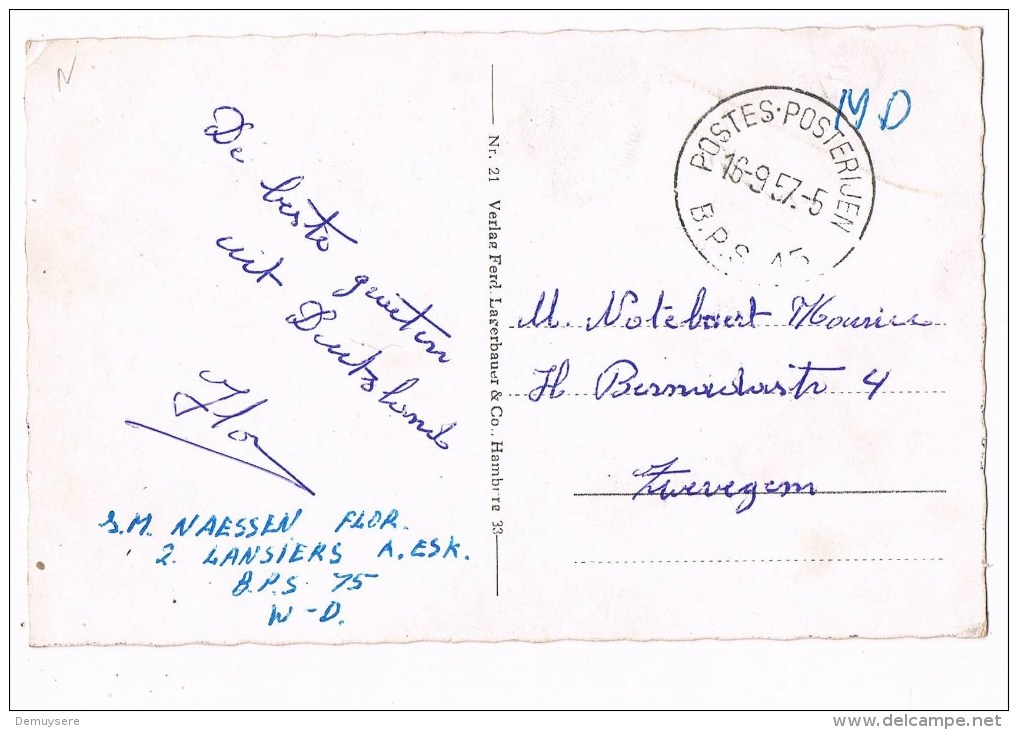 N
De beste groeten
uit Duitsland
Flor
S.M. NAESSEN FLOR.
2. LANSIERS A. ESK.
B.P.S 75
W-D.
Nr. 21 Verlag Ferd. Lagerbauer & Co., Hamburg 33
MD
POSTES·POSTERIJEN
16-9.57.-5
B.P.S
M. Notebaert Maurice
H Bernadastr 4
Zwevegem
Demuysere
www.delcampe.net